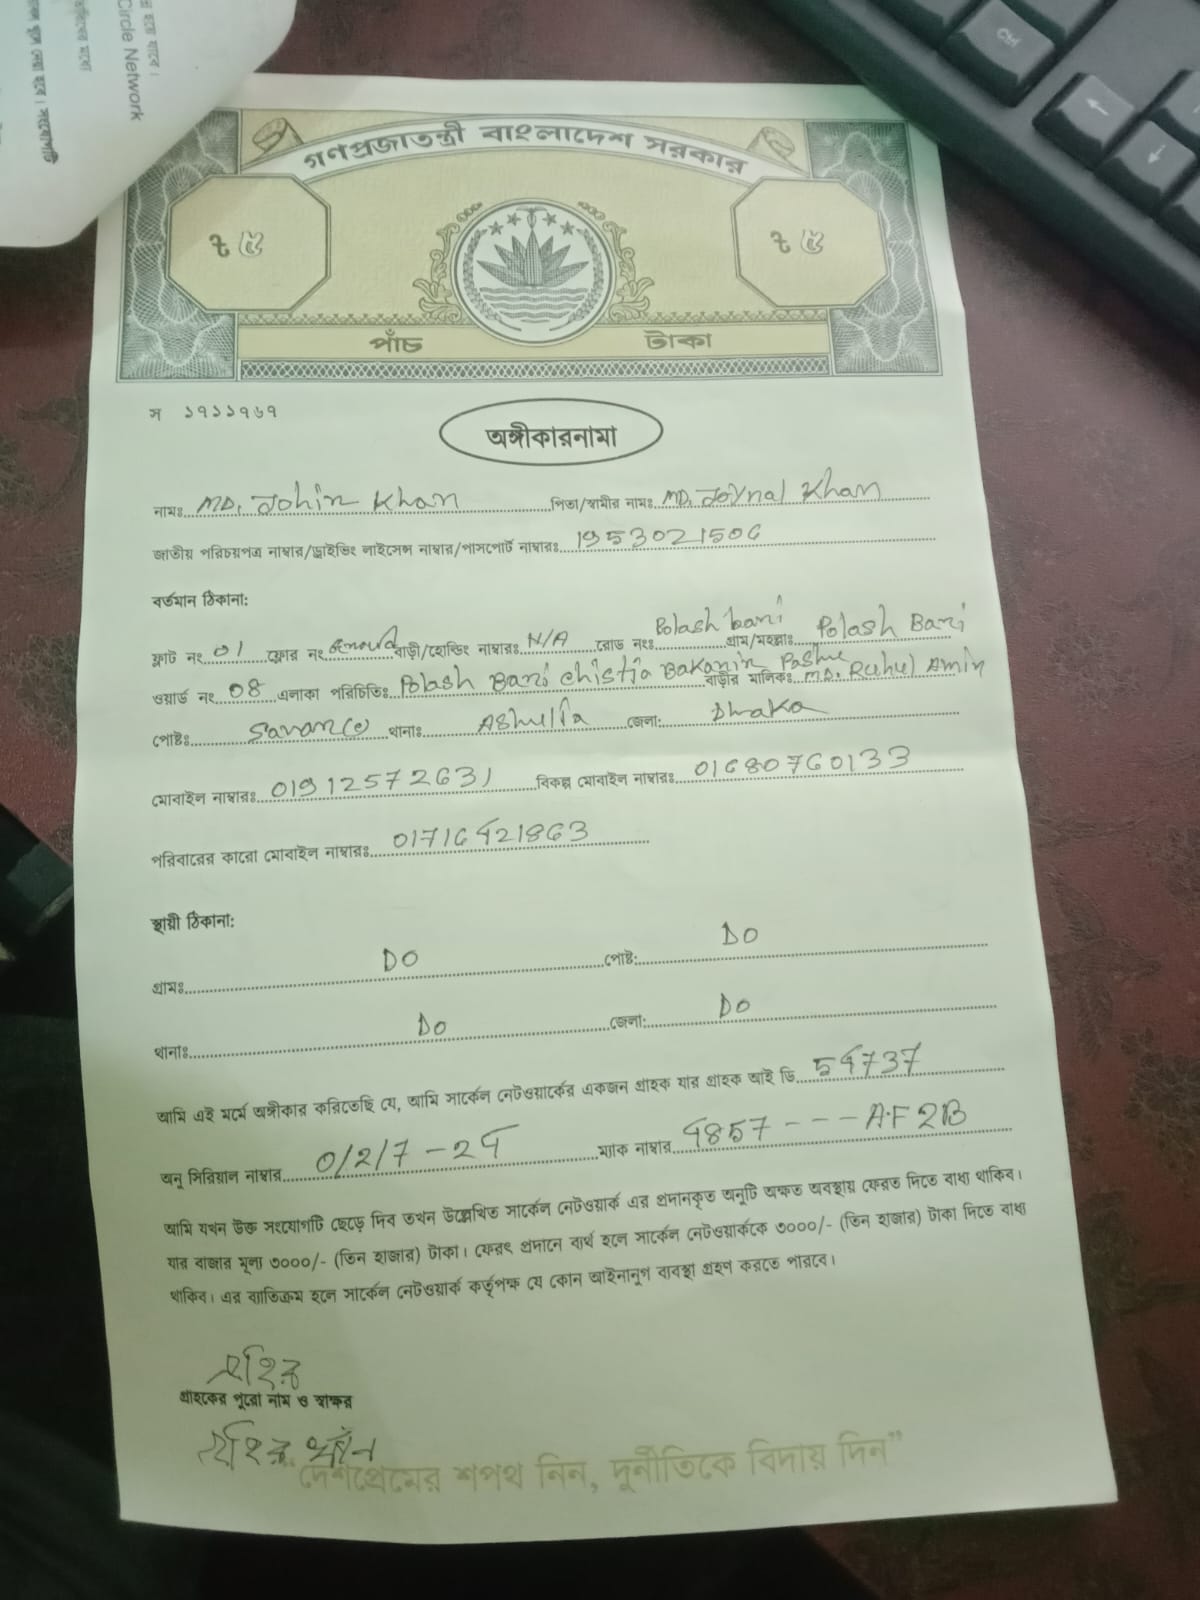 হয়ে যাবে।
Circle Network
গণপ্রজাতন্ত্রী বাংলাদেশ সরকার
৳ ৫ ৳ ৫
পাঁচ টাকা
স ১৭১১৭৬৭
অঙ্গীকারনামা
নামঃ MD. Johir Khan পিতা/স্বামীর নামঃ MD. Joynal Khan
জাতীয় পরিচয়পত্র নাম্বার/ড্রাইভিং লাইসেন্স নাম্বার/পাসপোর্ট নাম্বারঃ 1953021506
বর্তমান ঠিকানা:
ফ্লাট নং 01 ফ্লোর নং বাড়ী/হোল্ডিং নাম্বারঃ N/A রোড নংঃ Polash bari গ্রাম/মহল্লাঃ Polash Bari
ওয়ার্ড নং 08 এলাকা পরিচিতিঃ Polash Bari Chistia Bakanir Pashe বাড়ীর মালিকঃ MD. Ruhul Amin
পোষ্টঃ থানাঃ Ashulia জেলা: Dhaka
মোবাইল নাম্বারঃ 01912572631 বিকল্প মোবাইল নাম্বারঃ 01680760133
পরিবারের কারো মোবাইল নাম্বারঃ 01716421863
স্থায়ী ঠিকানা:
গ্রামঃ DO পোষ্ট: DO
থানাঃ DO জেলা: DO
আমি এই মর্মে অঙ্গীকার করিতেছি যে, আমি সার্কেল নেটওয়ার্কের একজন গ্রাহক যার গ্রাহক আই ডি 54737
অনু সিরিয়াল নাম্বার 0/2/7-24 ম্যাক নাম্বার 4857---AF2B
আমি যখন উক্ত সংযোগটি ছেড়ে দিব তখন উল্লেখিত সার্কেল নেটওয়ার্ক এর প্রদানকৃত অনুটি অক্ষত অবস্থায় ফেরত দিতে বাধ্য থাকিব।
যার বাজার মূল্য ৩০০০/- (তিন হাজার) টাকা। ফেরৎ প্রদানে ব্যর্থ হলে সার্কেল নেটওয়ার্ককে ৩০০০/- (তিন হাজার) টাকা দিতে বাধ্য
থাকিব। এর ব্যাতিক্রম হলে সার্কেল নেটওয়ার্ক কর্তৃপক্ষ যে কোন আইনানুগ ব্যবস্থা গ্রহণ করতে পারবে।
জহির
গ্রাহকের পুরো নাম ও স্বাক্ষর
জহির খাঁন
“দেশপ্রেমের শপথ নিন, দুর্নীতিকে বিদায় দিন”